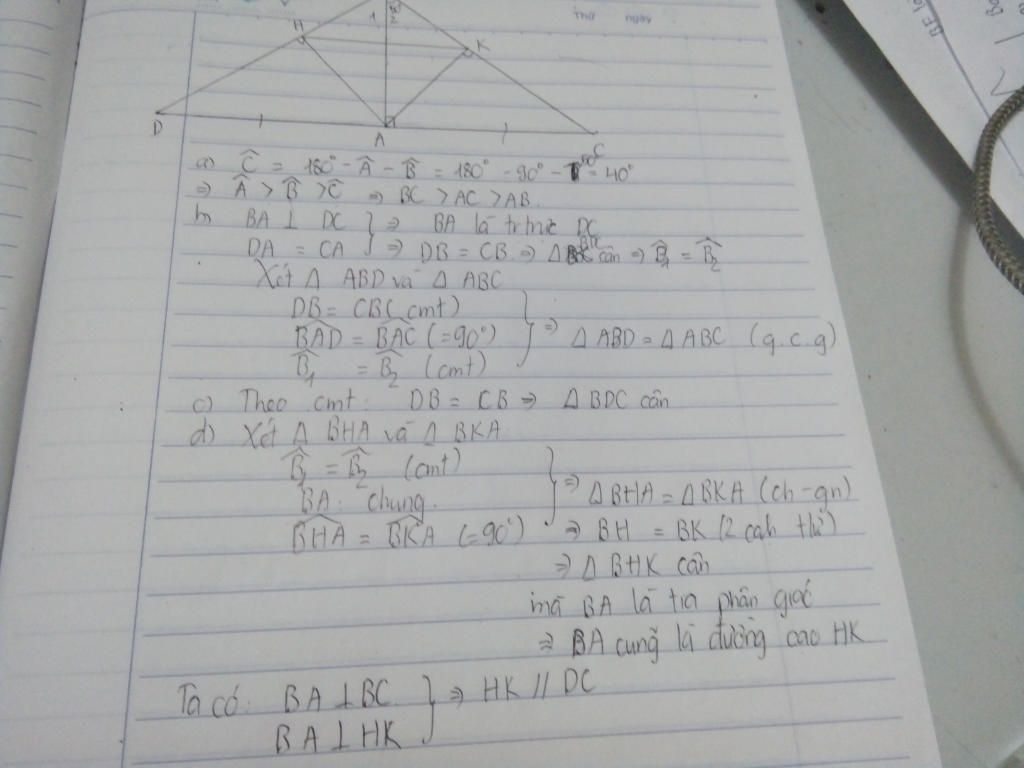 Thứ ngày
H 1 2 K
D A C
a) Ĉ = 180° - Â - B̂ = 180° - 90° - 50° = 40°
⇒ Â > B̂ > Ĉ ⇒ BC > AC > AB.
b) BA ⊥ DC } ⇒ BA là tr trực DC
DA = CA } ⇒ DB = CB ⇒ Δ BDC cân ⇒ B̂₁ = B̂₂
Xét Δ ABD và Δ ABC
DB = CB (cmt)
BAD = BAC (=90°) } ⇒ Δ ABD = Δ ABC (g.c.g)
B̂₁ = B̂₂ (cmt)
c) Theo cmt: DB = CB ⇒ Δ BDC cân
d) Xét Δ BHA và Δ BKA
B̂₁ = B̂₂ (cmt)
BA: chung. } ⇒ Δ BHA = Δ BKA (ch - gn)
BHA = BKA (=90°) ⇒ BH = BK (2 cạh tứ)
⇒ Δ BHK cân
mà BA là tia phân giác
⇒ BA cũng là đường cao HK
Ta có: BA ⊥ BC } ⇒ HK // DC
BA ⊥ HK